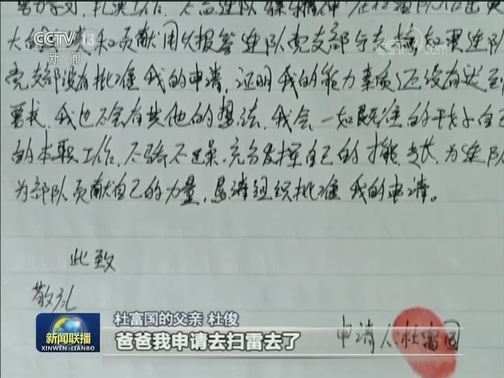 CCTV 13
新闻
党支部没有批准我的申请，证明我的能力素质还没有达到
要求，我也不会有其他的想法，我会一如既往的干好自己
的本职工作，不骄不躁，充分发挥自己的才能，专长，为连队
为部队贡献自己的力量，恳请组织批准我的申请。
此致
敬礼
申请人杜富国
杜富国的父亲 杜俊
新闻联播
XINWEN LIANBO
爸爸我申请去扫雷去了